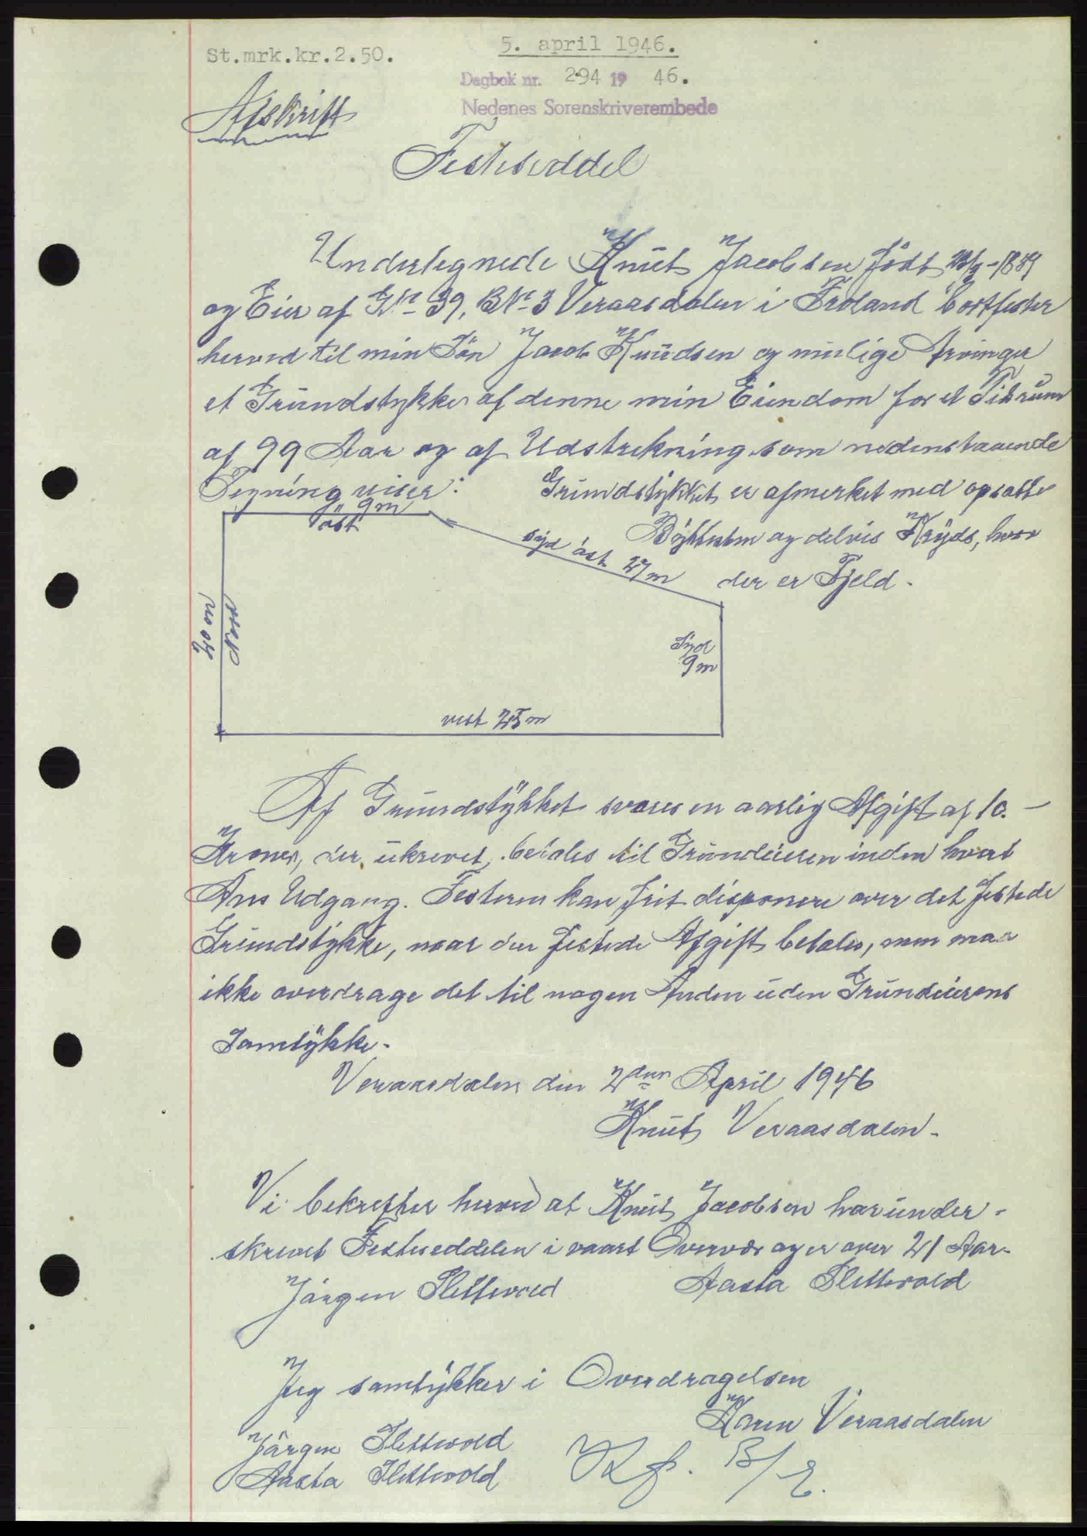 St.mrk.kr.2.50.
5. april 1946.
Dagbok nr. 294 19 46.
Nedenes Sorenskriverembede
Afskrift
Festeseddel
Undertegnede Knut Jacobsen født -1889
og Eier af GNr 39, BNr 3 Veraasdalen i Froland bortfester
herved til min Søn Jacob Knudsen og mulige Arvinger
et Grundstykke af denne min Eiendom for et Tidsrum
af 99 Aar og af Udstrekning som nedenstaaende
Tegning viser:
Grundstykket er afmerket med opsatte
Bøyttesten og delvis Kryds, hvor
der er Fjeld.
9 m
øst
syd øst 27 m
20 m
Nord
Syd
9 m
vest 25 m
Af Grundstykket svares en aarlig Afgift af 10.-
Kroner, der ukrevet, betales til Grundeieren inden hvert
Aars Udgang. Festeren kan frit disponere over det festede
Grundstykke, naar den festede Afgift betales, men maa
ikke overdrage det til nogen Anden uden Grundeierens
Samtykke.
Veraasdalen den 2den April 1946
Knut Veraasdalen.
Vi bekrefter herved at Knut Jacobsen har under-
skrevet Festeseddelen i vaart Overvær og er over 21 Aar.
Jørgen Slettevold
Aasta Slettevold
Jeg samtykker i Overdragelsen
Karen Veraasdalen
Jørgen Slettevold
Aasta Slettevold